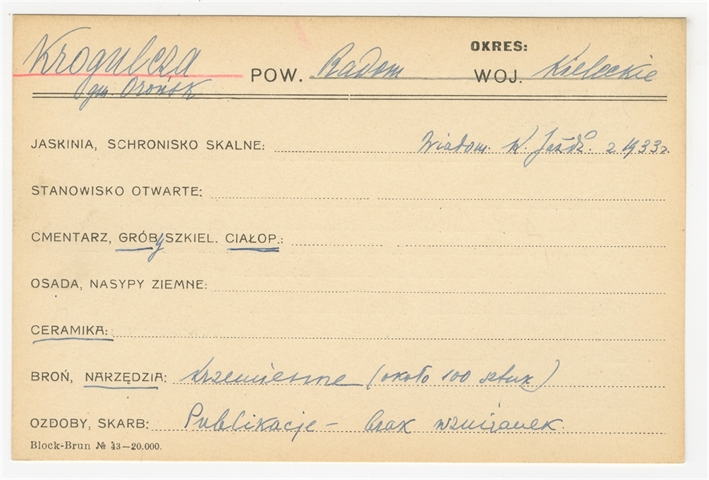 OKRES:
Krogulcza POW. Radom WOJ. Kieleckie
gm. Orońsk
JASKINIA, SCHRONISKO SKALNE: Wiadom. K. Jażdż. z 1933 r.
STANOWISKO OTWARTE:
CMENTARZ, GRÓBy SZKIEL. CIAŁOP.:
OSADA, NASYPY ZIEMNE:
CERAMIKA:
BROŃ, NARZĘDZIA: Krzemienne (około 100 sztuk)
OZDOBY, SKARB: Publikacje – brak wzmianek.
Block-Brun № 43—20.000.